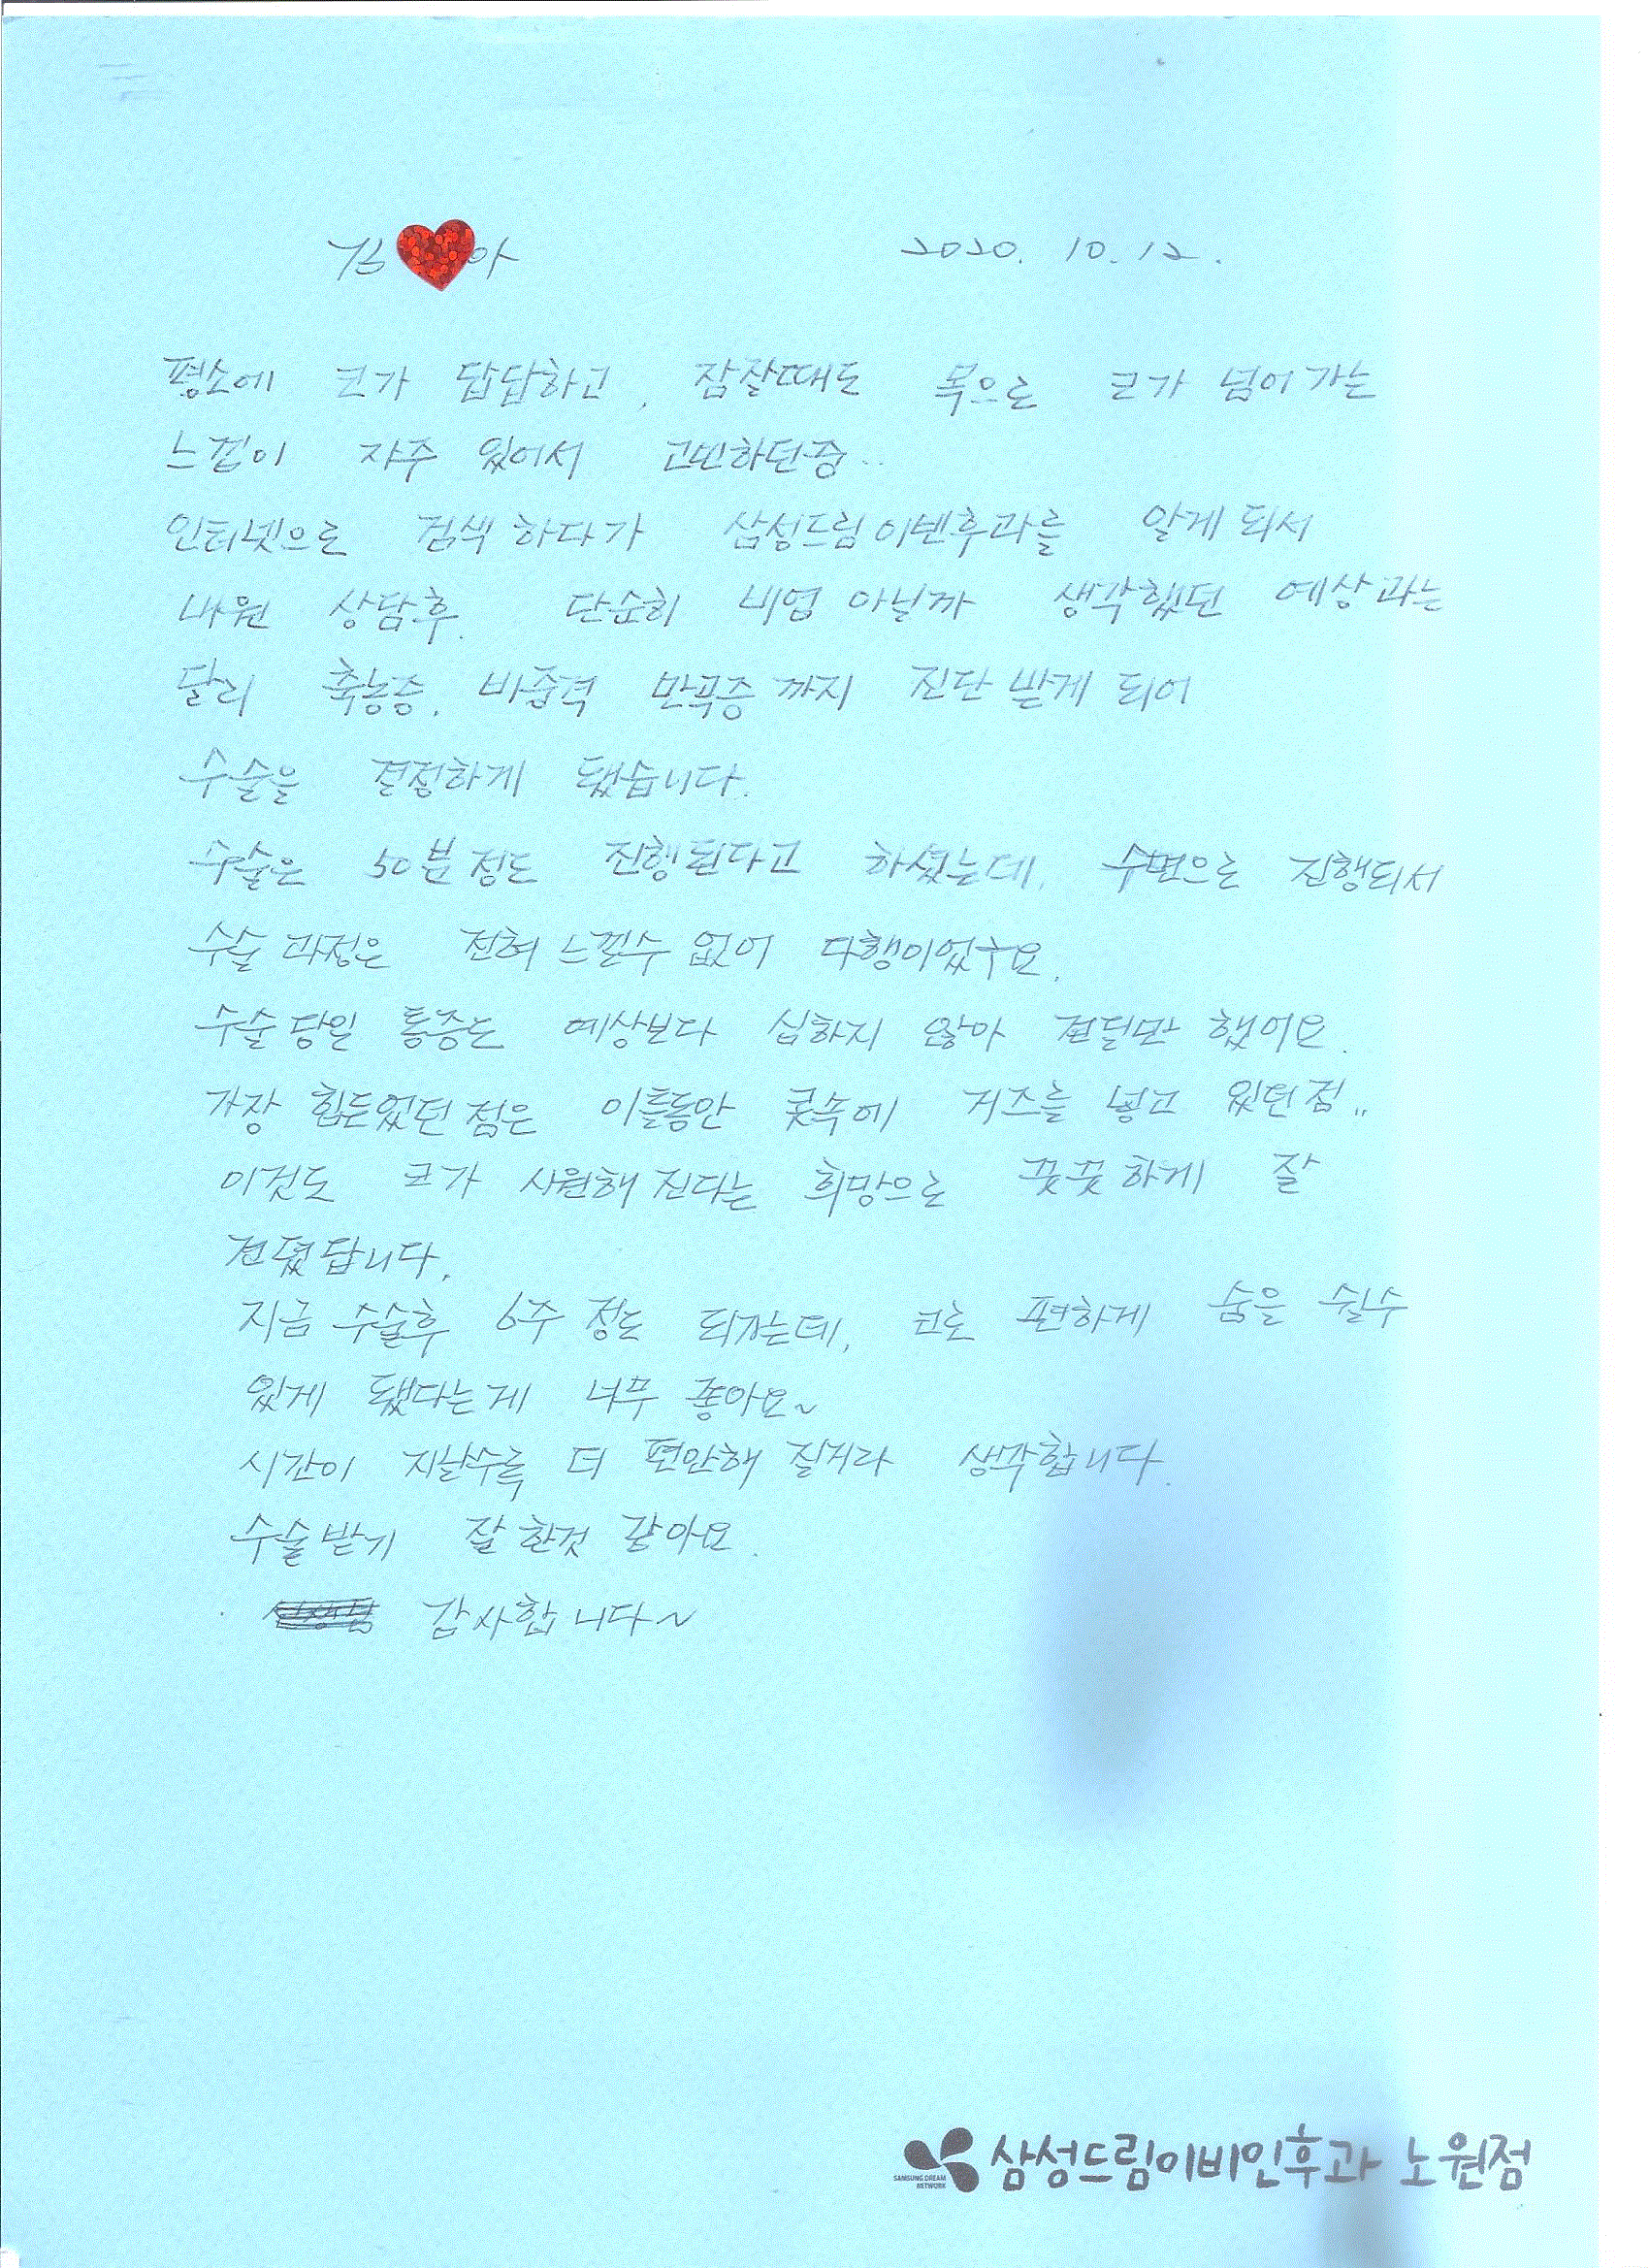 김 아 2020. 10. 12.
평소에 코가 답답하고, 잠잘때도 목으로 코가 넘어가는
느낌이 자주 있어서 고민하던중..
인터넷으로 검색하다가 삼성드림이빈후과를 알게되서
내원 상담후. 단순히 비염 아닐까 생각했던 예상과는
달리 축농증, 비중격 만곡증까지 진단받게 되어
수술을 결정하게 됐습니다.
수술은 50분정도 진행된다고 하셨는데, 수면으로 진행되서
수술과정은 전혀 느낄수 없어 다행이었구요.
수술당일 통증도 예상보다 심하지 않아 견딜만 했어요.
가장 힘든었던점은 이틀동안 콧속에 거즈를 넣고 있던점..
이것도 코가 시원해진다는 희망으로 꿋꿋하게 잘
견뎠답니다.
지금 수술후 6주정도 되가는데, 코로 편하게 숨을 쉴수
있게 됐다는게 너무 좋아요~
시간이 지날수록 더 편안해질거라 생각합니다.
수술받기 잘한것 같아요.
감사합니다~
SAMSUNG DREAM NETWORK 삼성드림이비인후과 노원점